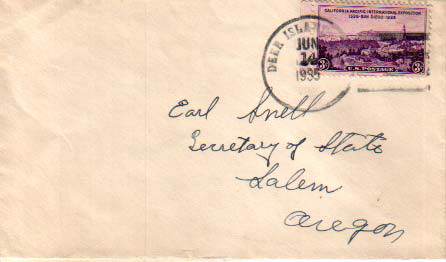 CALIFORNIA PACIFIC INTERNATIONAL EXPOSITION
1935-SAN DIEGO-1935
3¢ U.S. POSTAGE 3¢
DEER ISLA
JUN
14
1935
Earl Snell
Secretary of State
Salem
Oregon